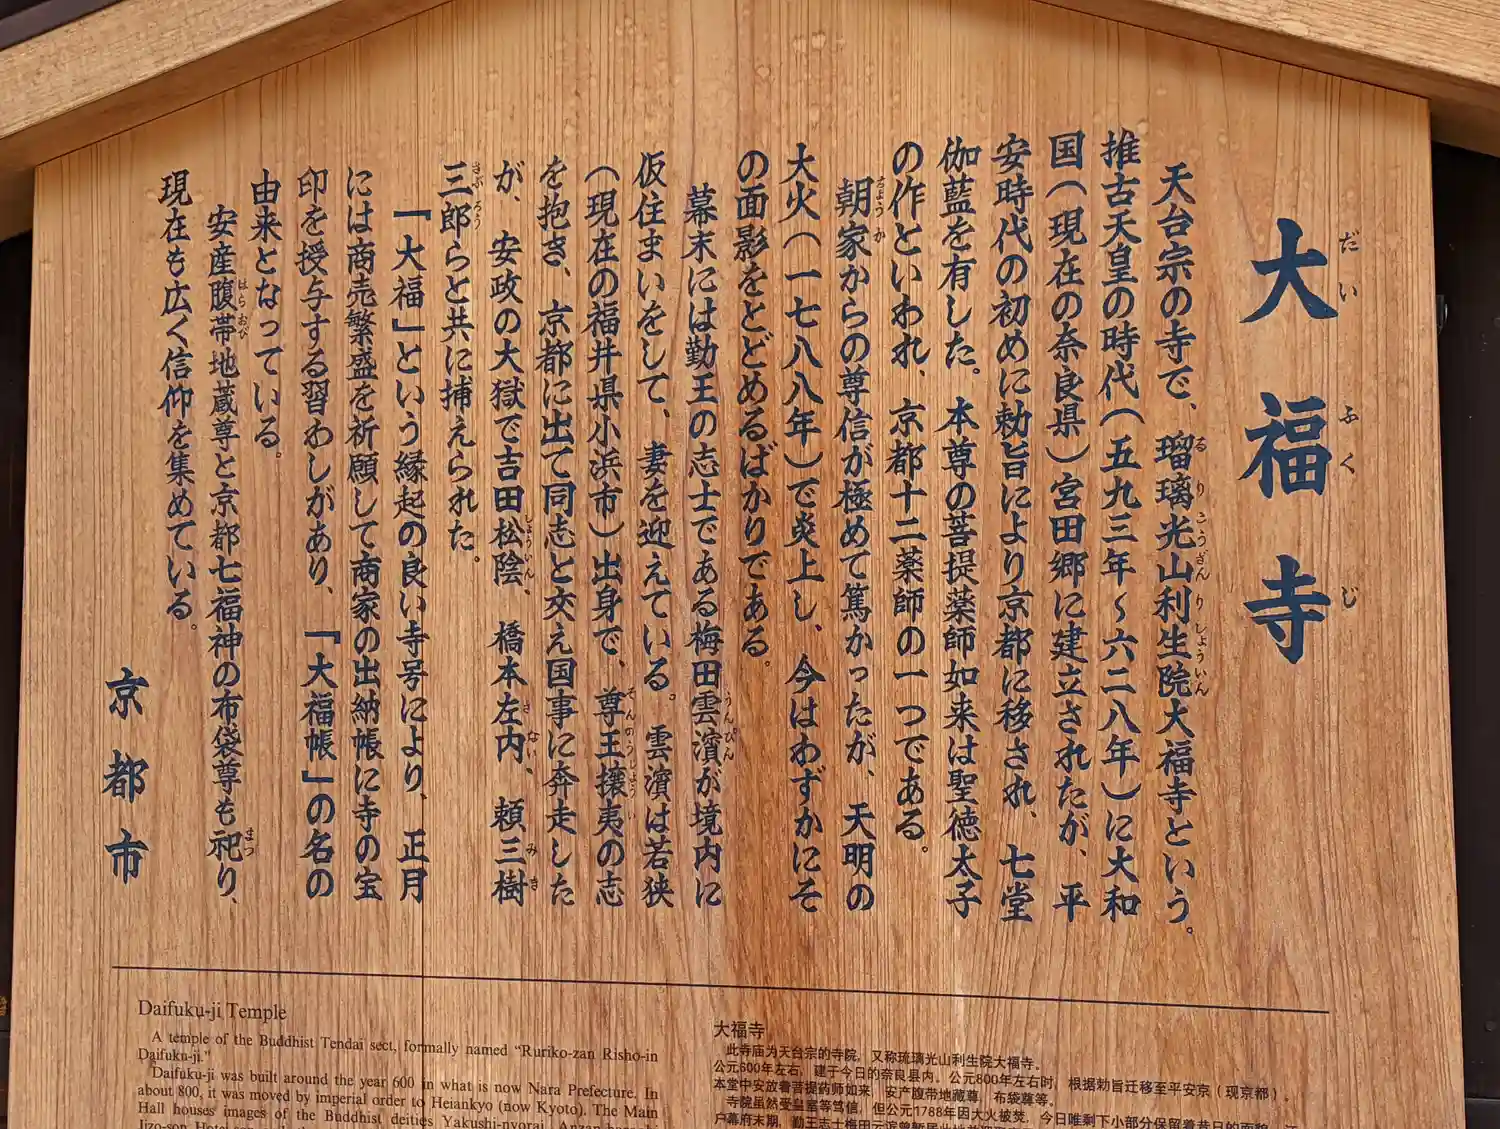 大福寺
だいふくじ
天台宗の寺で、瑠璃光山利生院大福寺という。
るりこうざんりしょういん
推古天皇の時代(五九三年~六二八年)に大和
国(現在の奈良県)宮田郷に建立されたが、平
安時代の初めに勅旨により京都に移され、七堂
伽藍を有した。本尊の菩提薬師如来は聖徳太子
の作といわれ、京都十二薬師の一つである。
朝家からの尊信が極めて篤かったが、天明の
ちょうか
大火(一七八八年)で炎上し、今はわずかにそ
の面影をとどめるばかりである。
幕末には勤王の志士である梅田雲濱が境内に
うんぴん
仮住まいをして、妻を迎えている。雲濱は若狭
(現在の福井県小浜市)出身で、尊王攘夷の志
そんのうじょうい
を抱き、京都に出て同志と交え国事に奔走した
が、安政の大獄で吉田松陰、橋本左内、頼三樹
しょういん さない みき
三郎らと共に捕えられた。
さぶろう
「大福」という縁起の良い寺号により、正月
には商売繁盛を祈願して商家の出納帳に寺の宝
印を授与する習わしがあり、「大福帳」の名の
由来となっている。
安産腹帯地蔵尊と京都七福神の布袋尊も祀り、
はらおび まつ
現在も広く信仰を集めている。
京都市
Daifuku-ji Temple
A temple of the Buddhist Tendai sect, formally named "Ruriko-zan Risho-in
Daifuku-ji."
Daifuku-ji was built around the year 600 in what is now Nara Prefecture. In
about 800, it was moved by imperial order to Heiankyo (now Kyoto). The Main
Hall houses images of the Buddhist deities Yakushi-nyorai, Anzan-
大福寺
此寺庙为天台宗的寺院，又称琉璃光山利生院大福寺。
公元600年左右，建于今日的奈良县内。公元800年左右时，根据勅旨迁移至平安京（现京都）。
本堂中安放着菩提药师如来，安产腹带地藏尊，布袋尊等。
寺院虽然受皇室等笃信，但公元1788年因大火被焚，今日唯剩下小部分保留着昔日的面貌